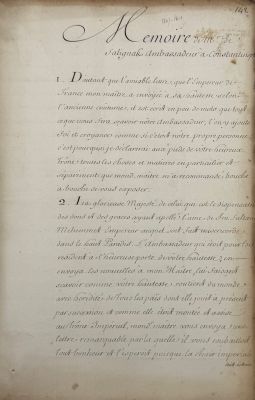 142
Memoire de Mr. de
Salignac Ambassadeur a Constantinople
1. Dautant que l'amiable lettre que l'Empereur de
France mon maître a envoyée a sa hautesse selon
l'ancienne coutume, il est écrit en peu de mots que tout
que vous sera par notre Ambassadeur, l'on y ajoute
foi et croyance comme si c'étoit notre propre personne
c'est pourquoi je declarerai aux pieds de votre heureux
trône toutes les choses et matieres en particulier et
separement que mond. maitre m'a recommandé bouche
a bouche de vous exposer.
2. La glorieuse Majesté de celui qui est le dispensateur
des dons et des graces ayant apellé l'ame de feu Sultan
Mehemmet Empereur auquel soit fait misericorde
dans le haut Paradis. L'Ambassadeur qui étoit pour lors
resident a l'heureuse porte de votre hautesse, en
envoya les nouvelles a mon Maitre, lui faisant
scavoir comme votre hautesse, contenant du monde
avec heredité de tous les païs dont elle jouit a présent
par succession et comme elle étoit montée et assise
au trône Imperial, mond. maitre vous envoya une
lettre remarquable par laquelle il vous souhaitoit
tout bonheur et l'esperoit puisque la chaise imperiale